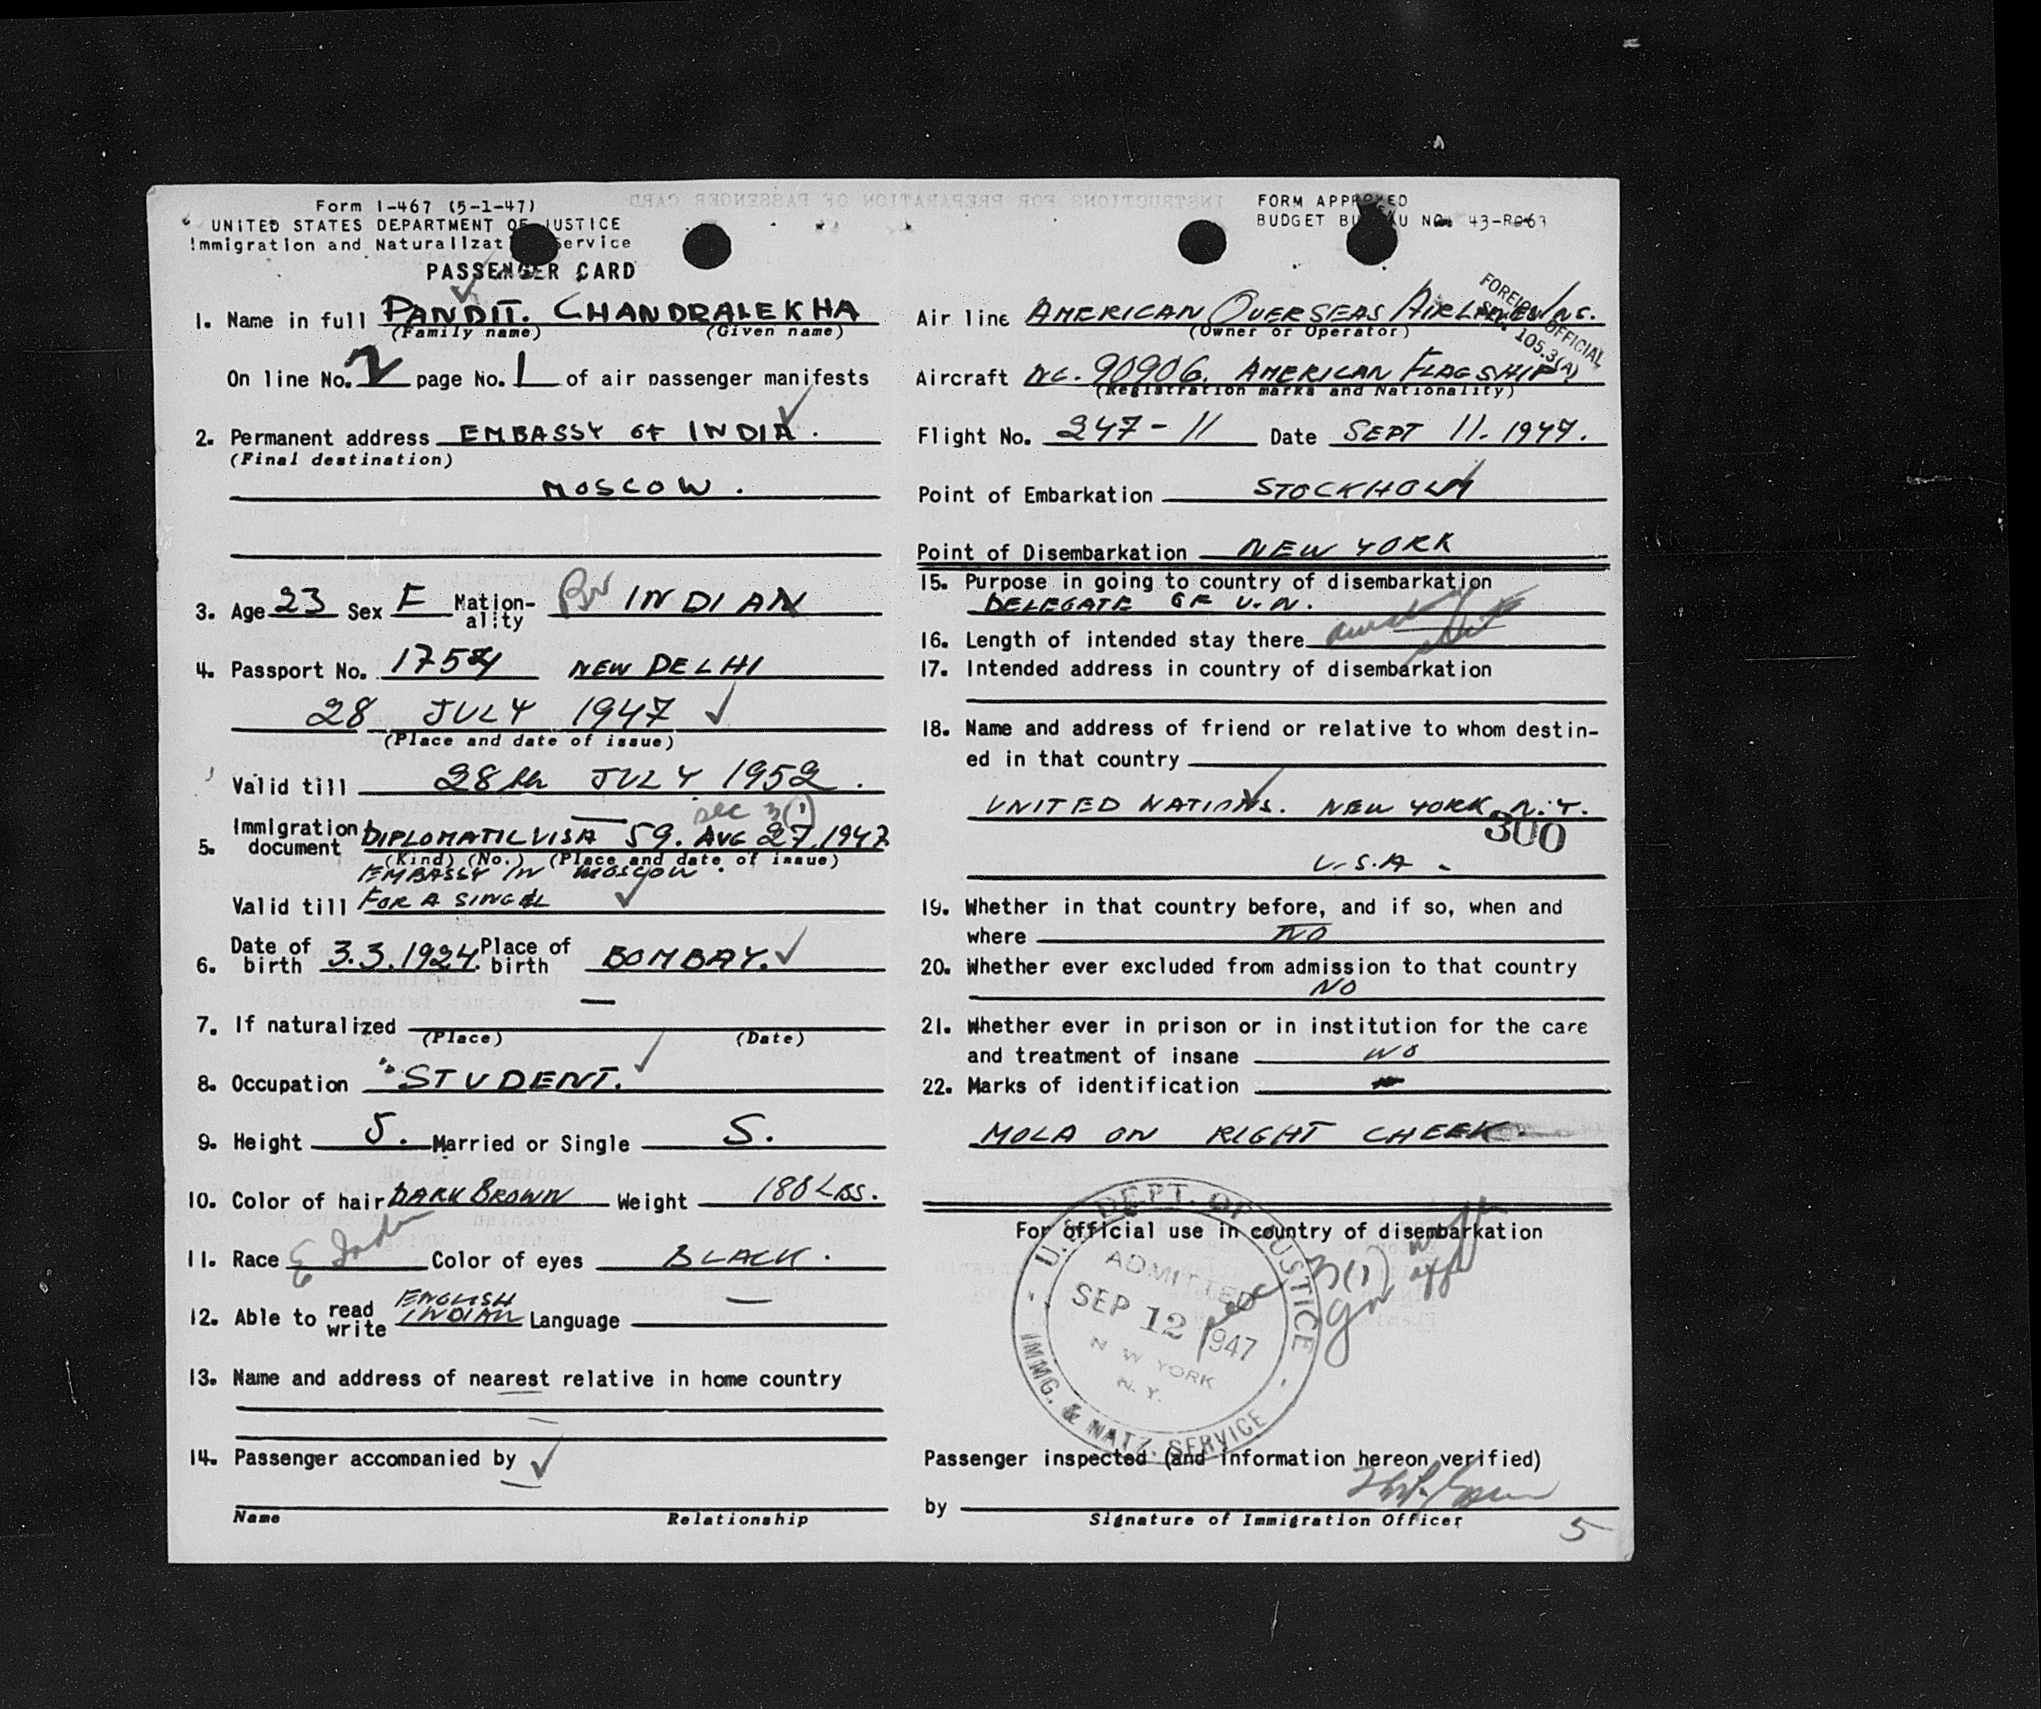 Form I-467 (5-1-47)
UNITED STATES DEPARTMENT OF JUSTICE
Immigration and Naturalization Service
PASSENGER CARD
FORM APPROVED
BUDGET BUREAU No. 43-R063
1. Name in full PANDIT. CHANDRALEKHA
(Family name) (Given name)
On line No. 2 page No. 1 of air passenger manifests
2. Permanent address EMBASSY OF INDIA.
(Final destination)
MOSCOW.
3. Age 23 Sex F Nation-ality Br INDIAN
4. Passport No. 1754 NEW DELHI
28 JULY 1947
(Place and date of issue)
Valid till 28th JULY 1952.
sec 3(1)
5. Immigration document DIPLOMATIC VISA 59. AUG 27, 1947
(Kind) (No.) (Place and date of issue)
EMBASSY IN MOSCOW.
Valid till FOR A SINGEL
6. Date of birth 3.3.1924. Place of birth BOMBAY.
7. If naturalized —
(Place) (Date)
8. Occupation STUDENT.
9. Height 5. Married or Single S.
10. Color of hair DARK BROWN Weight 180 LBS.
11. Race E Indn Color of eyes BLACK.
12. Able to read write ENGLISH INDIAN Language —
13. Name and address of nearest relative in home country
14. Passenger accompanied by
Name Relationship
Air line AMERICAN OVERSEAS AIRLINES INC.
(Owner or Operator)
FOREIGN OFFICIAL
SEC. 105.3(A)
Aircraft NC. 90906. AMERICAN FLAGSHIP
(Registration marks and Nationality)
Flight No. 247-11 Date SEPT 11. 1947.
Point of Embarkation STOCKHOLM
Point of Disembarkation NEW YORK
15. Purpose in going to country of disembarkation
DELEGATE OF U.N.
16. Length of intended stay there
17. Intended address in country of disembarkation
18. Name and address of friend or relative to whom destin-
ed in that country
UNITED NATIONS. NEW YORK N.Y.
300
U.S.A.
19. Whether in that country before, and if so, when and
where NO
20. Whether ever excluded from admission to that country
NO
21. Whether ever in prison or in institution for the care
and treatment of insane NO
22. Marks of identification
MOLA ON RIGHT CHEEK.
For official use in country of disembarkation
U.S. DEPT. OF JUSTICE
ADMITTED
SEP 12 1947
NEW YORK
N. Y.
IMMG. & NATZ. SERVICE
sec 3(1)
Passenger inspected (and information hereon verified)
by
Signature of Immigration Officer
5